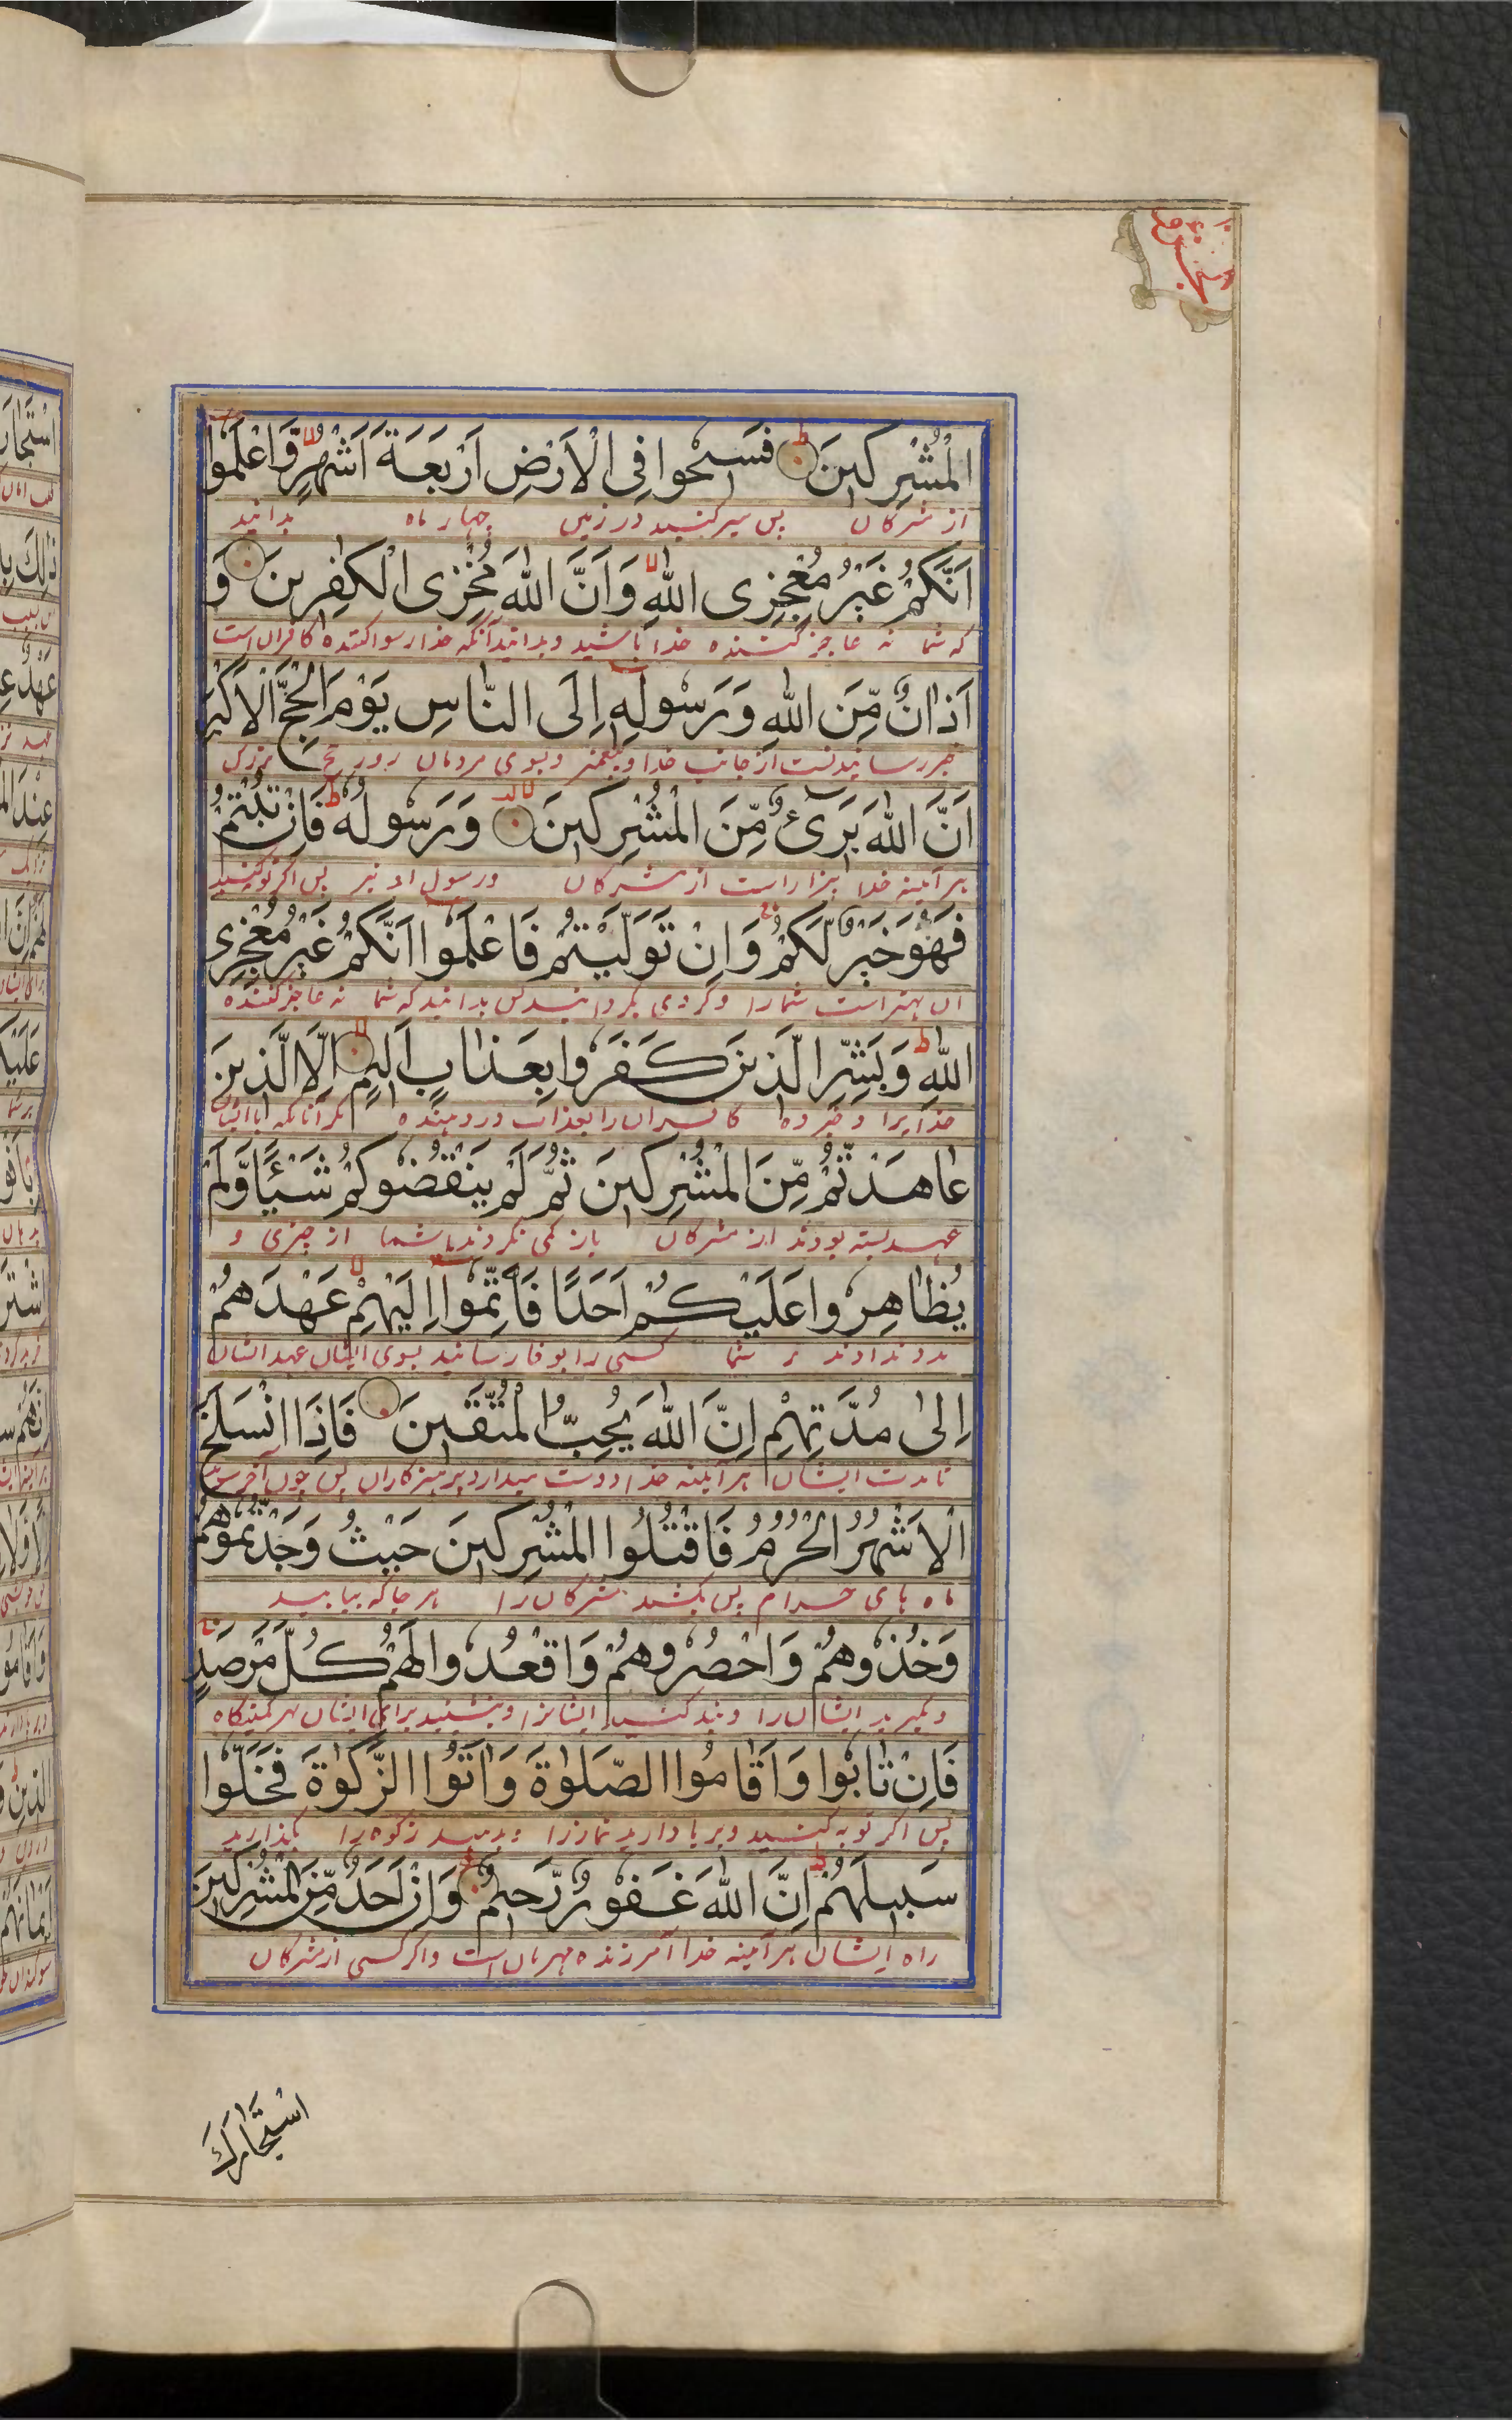 الْمُشْرِكِينَ فَسِيحُوا فِى الْاَرْضِ اَرْبَعَةَ اَشْهُرٍ وَّاعْلَمُوا
از مشرکان پس سیر کنید در زمین چهار ماه بدانید
اَنَّكُمْ غَيْرُ مُعْجِزِى اللّٰهِ وَاَنَّ اللّٰهَ مُخْزِى الْكٰفِرِينَ وَ
که شما نه عاجز کننده خدا باشید و بدانید آنکه خدا رسوا کننده کافران است
اَذَانٌ مِّنَ اللّٰهِ وَرَسُولِهٖ اِلَى النَّاسِ يَوْمَ الْحَجِّ الْاَكْبَرِ
خبر رسانیدنست از جانب خدا و پیغمبر و بسوی مردمان روز حج بزرگ
اَنَّ اللّٰهَ بَرِىءٌ مِّنَ الْمُشْرِكِينَ وَرَسُولُهٗ فَاِنْ تُبْتُمْ
هر آینه خدا بیزار است از مشرکان و رسول او نیز پس اگر توبه کنید
فَهُوَ خَيْرٌ لَّكُمْ وَاِنْ تَوَلَّيْتُمْ فَاعْلَمُوا اَنَّكُمْ غَيْرُ مُعْجِزِى
آن بهتر است شما را و گر روی بگردانید پس بدانید که شما نه عاجز کننده
اللّٰهِ وَبَشِّرِ الَّذِينَ كَفَرُوا بِعَذَابٍ اَلِيمٍ اِلَّا الَّذِينَ
خدایرا و خبر ده کافران را بعذاب درد دهنده مگر آنانکه با ایشان
عَاهَدْتُّمْ مِّنَ الْمُشْرِكِينَ ثُمَّ لَمْ يَنْقُصُوكُمْ شَيْئًا وَّلَمْ
عهد بسته بودند از مشرکان باز کمی نکردند با شما از چیزی و
يُظَاهِرُوا عَلَيْكُمْ اَحَدًا فَاَتِمُّوا اِلَيْهِمْ عَهْدَهُمْ
مدد ندادند بر شما کسی را بوفا رسانید بسوی ایشان عهد ایشان
اِلٰى مُدَّتِهِمْ اِنَّ اللّٰهَ يُحِبُّ الْمُتَّقِينَ فَاِذَا انْسَلَخَ
تا مدت ایشان هر آینه خدا دوست میدارد پرهیزکاران پس چون آخر شوند
الْاَشْهُرُ الْحُرُمُ فَاقْتُلُوا الْمُشْرِكِينَ حَيْثُ وَجَدْتُّمُوهُمْ
ماه های حرام پس بکشید مشرکان را هر جا که بیابید
وَخُذُوهُمْ وَاحْصُرُوهُمْ وَاقْعُدُوا لَهُمْ كُلَّ مَرْصَدٍ
و بگیرید ایشان را و بند کنید ایشانرا و بنشینید برای ایشان بهر کمینگاه
فَاِنْ تَابُوا وَاَقَامُوا الصَّلٰوةَ وَاٰتَوُا الزَّكٰوةَ فَخَلُّوا
پس اگر توبه کنید و برپا دارید نماز را و بدهید زکوه را بگذارید
سَبِيلَهُمْ اِنَّ اللّٰهَ غَفُورٌ رَّحِيمٌ وَاِنْ اَحَدٌ مِّنَ الْمُشْرِكِينَ
راه ایشان هر آینه خدا آمرزنده مهربان است و اگر کسی از مشرکان
اسْتَجَارَكَ